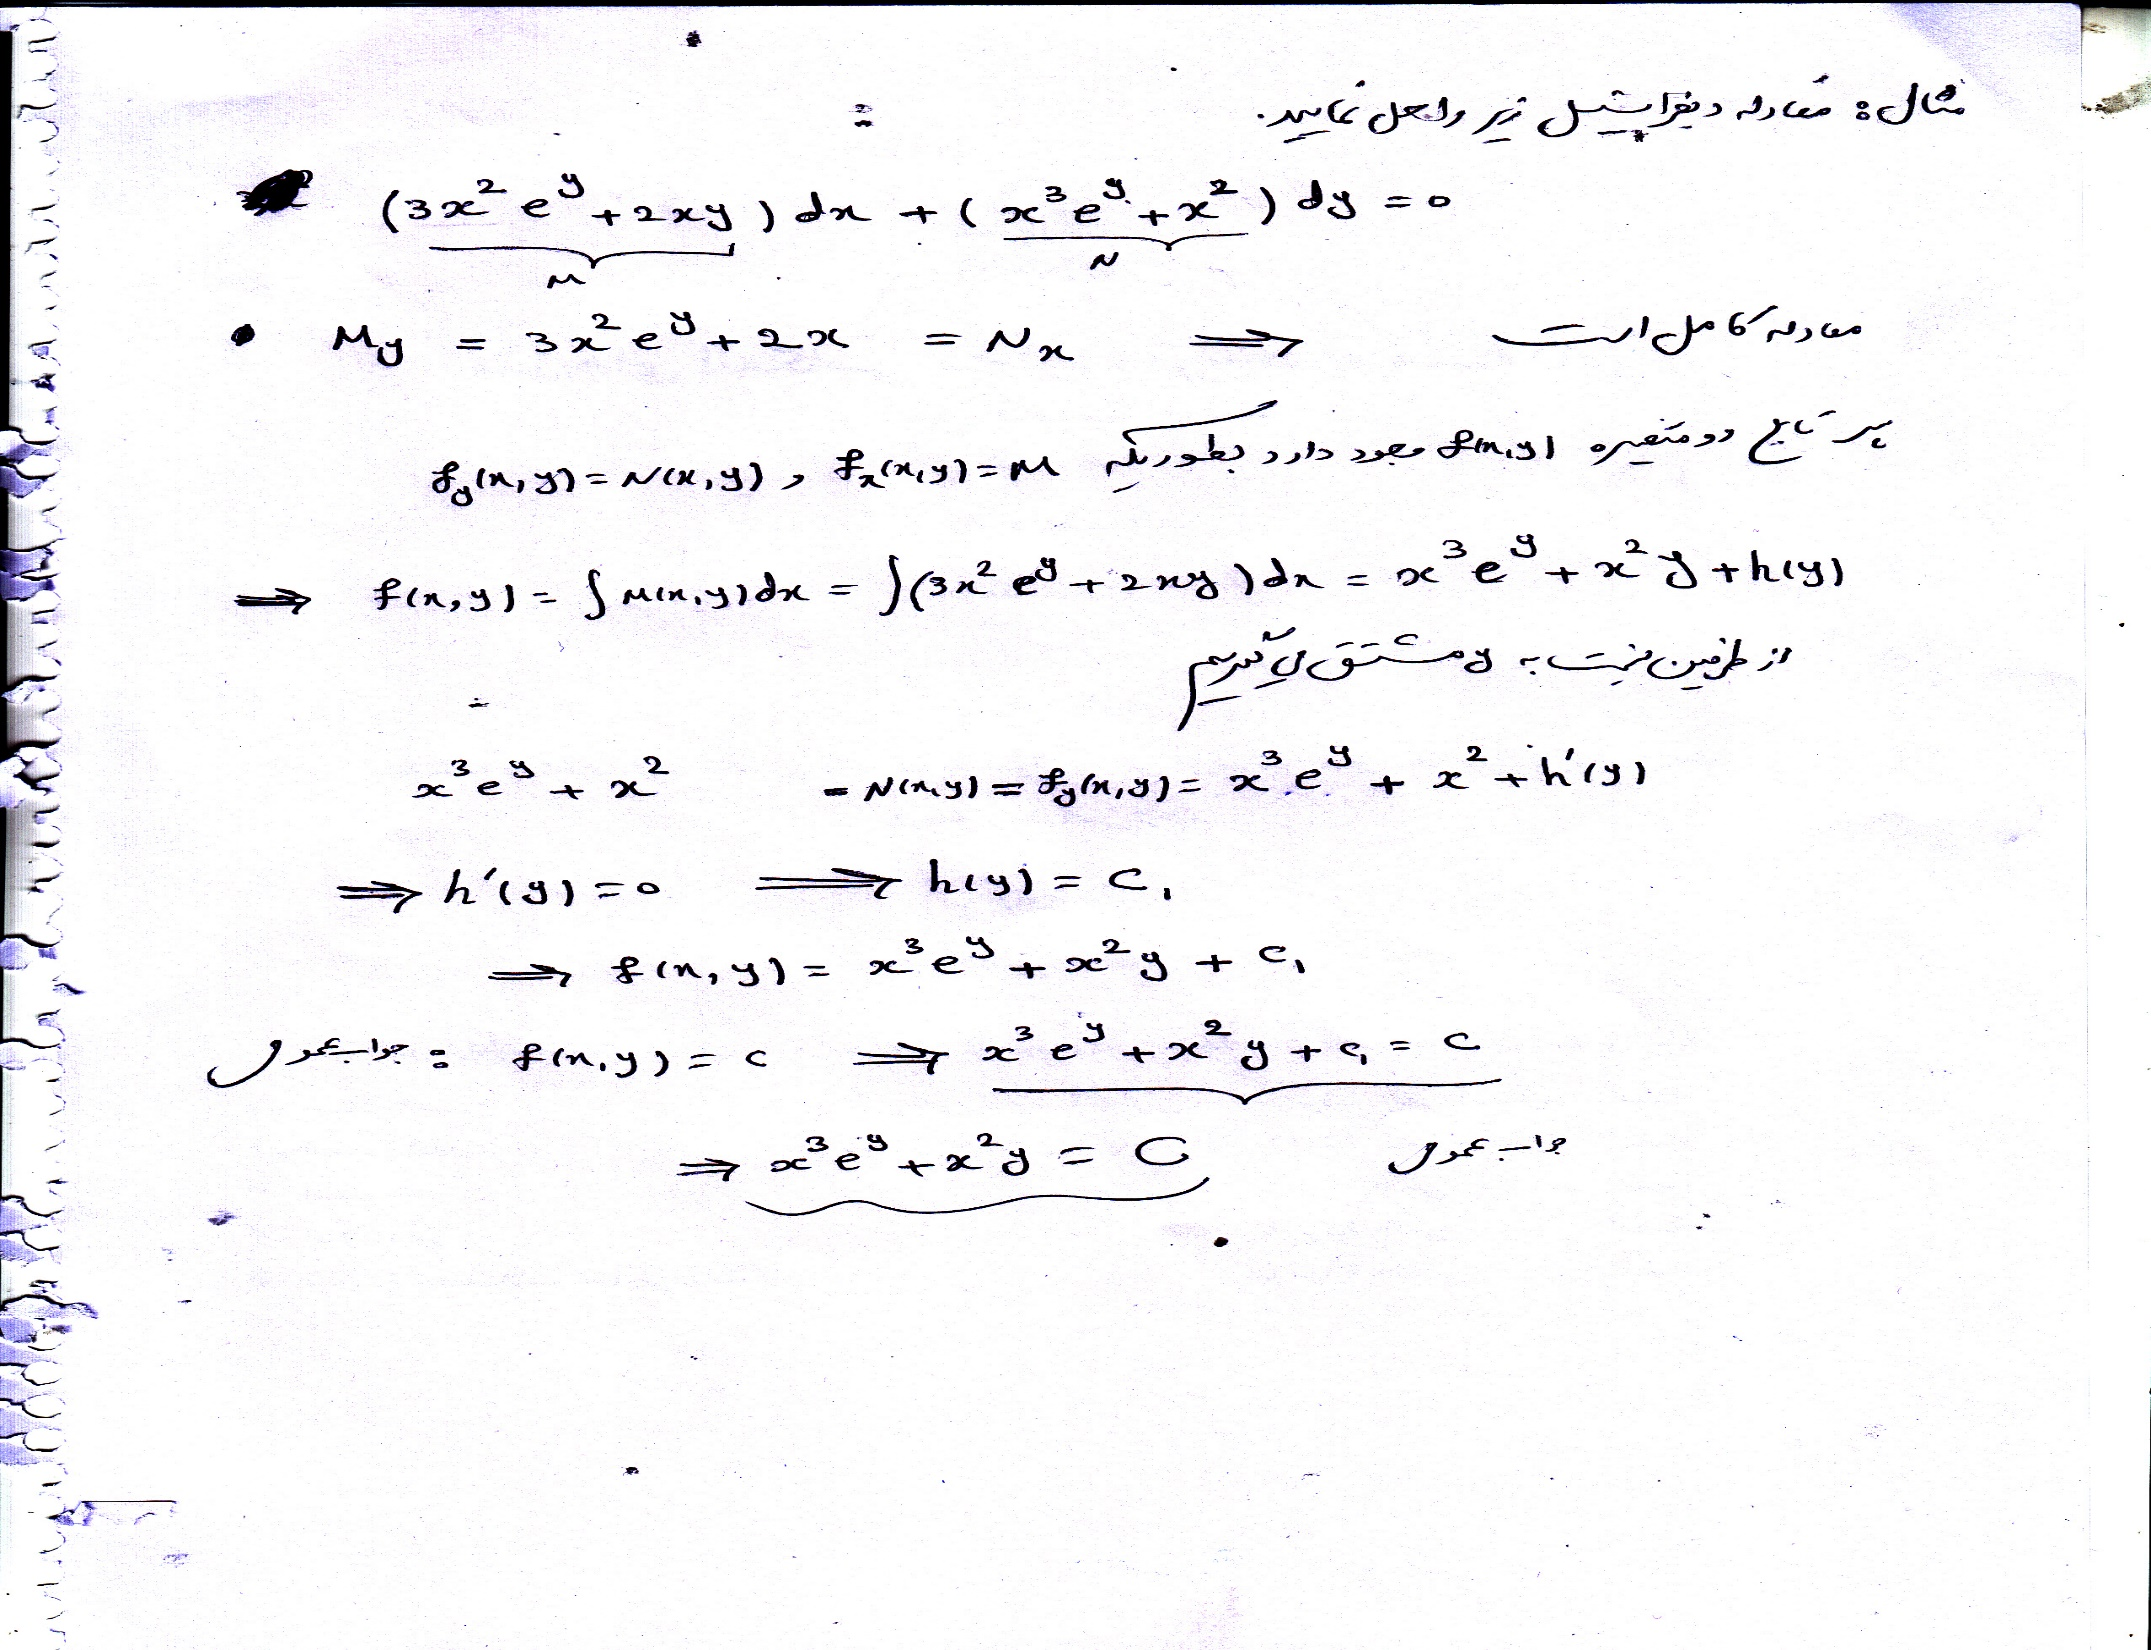 مثال: معادله دیفرانسیل زیر را حل نمایید.
(3x² e^y + 2xy) dx + (x³e^y + x²) dy = 0
M N
• My = 3x² e^y + 2x = Nx ⟹ معادله کامل است
پس تابع دو متغیره f(x,y) وجود دارد بطوریکه fx(x,y) = M و fy(x,y) = N(x,y)
⟹ f(x,y) = ∫ M(x,y)dx = ∫(3x² e^y + 2xy)dx = x³e^y + x²y + h(y)
از طرفین نسبت به y مشتق می گیریم
x³e^y + x² = N(x,y) = fy(x,y) = x³e^y + x² + h'(y)
⟹ h'(y) = 0 ⟹ h(y) = C₁
⟹ f(x,y) = x³e^y + x²y + C₁
جواب عمومی : f(x,y) = c ⟹ x³e^y + x²y + C₁ = C
⟹ x³e^y + x²y = C جواب عمومی